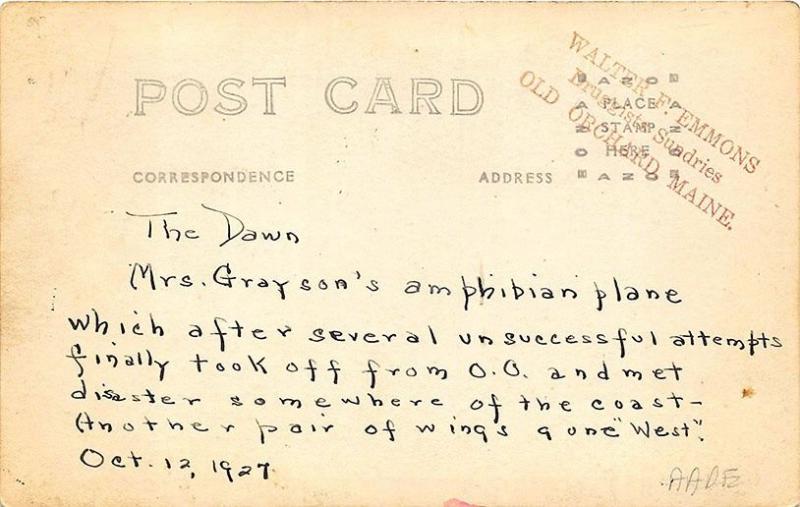 WALTER F. EMMONS
Druggists Sundries
OLD ORCHARD, MAINE.
POST CARD
AZO
PLACE
STAMP
HERE
AZO
CORRESPONDENCE
ADDRESS
The Dawn
Mrs. Grayson's amphibian plane
which after several unsuccessful attempts
finally took off from O.O. and met
disaster somewhere of the coast-
Another pair of wings gone "West".
Oct. 12, 1927